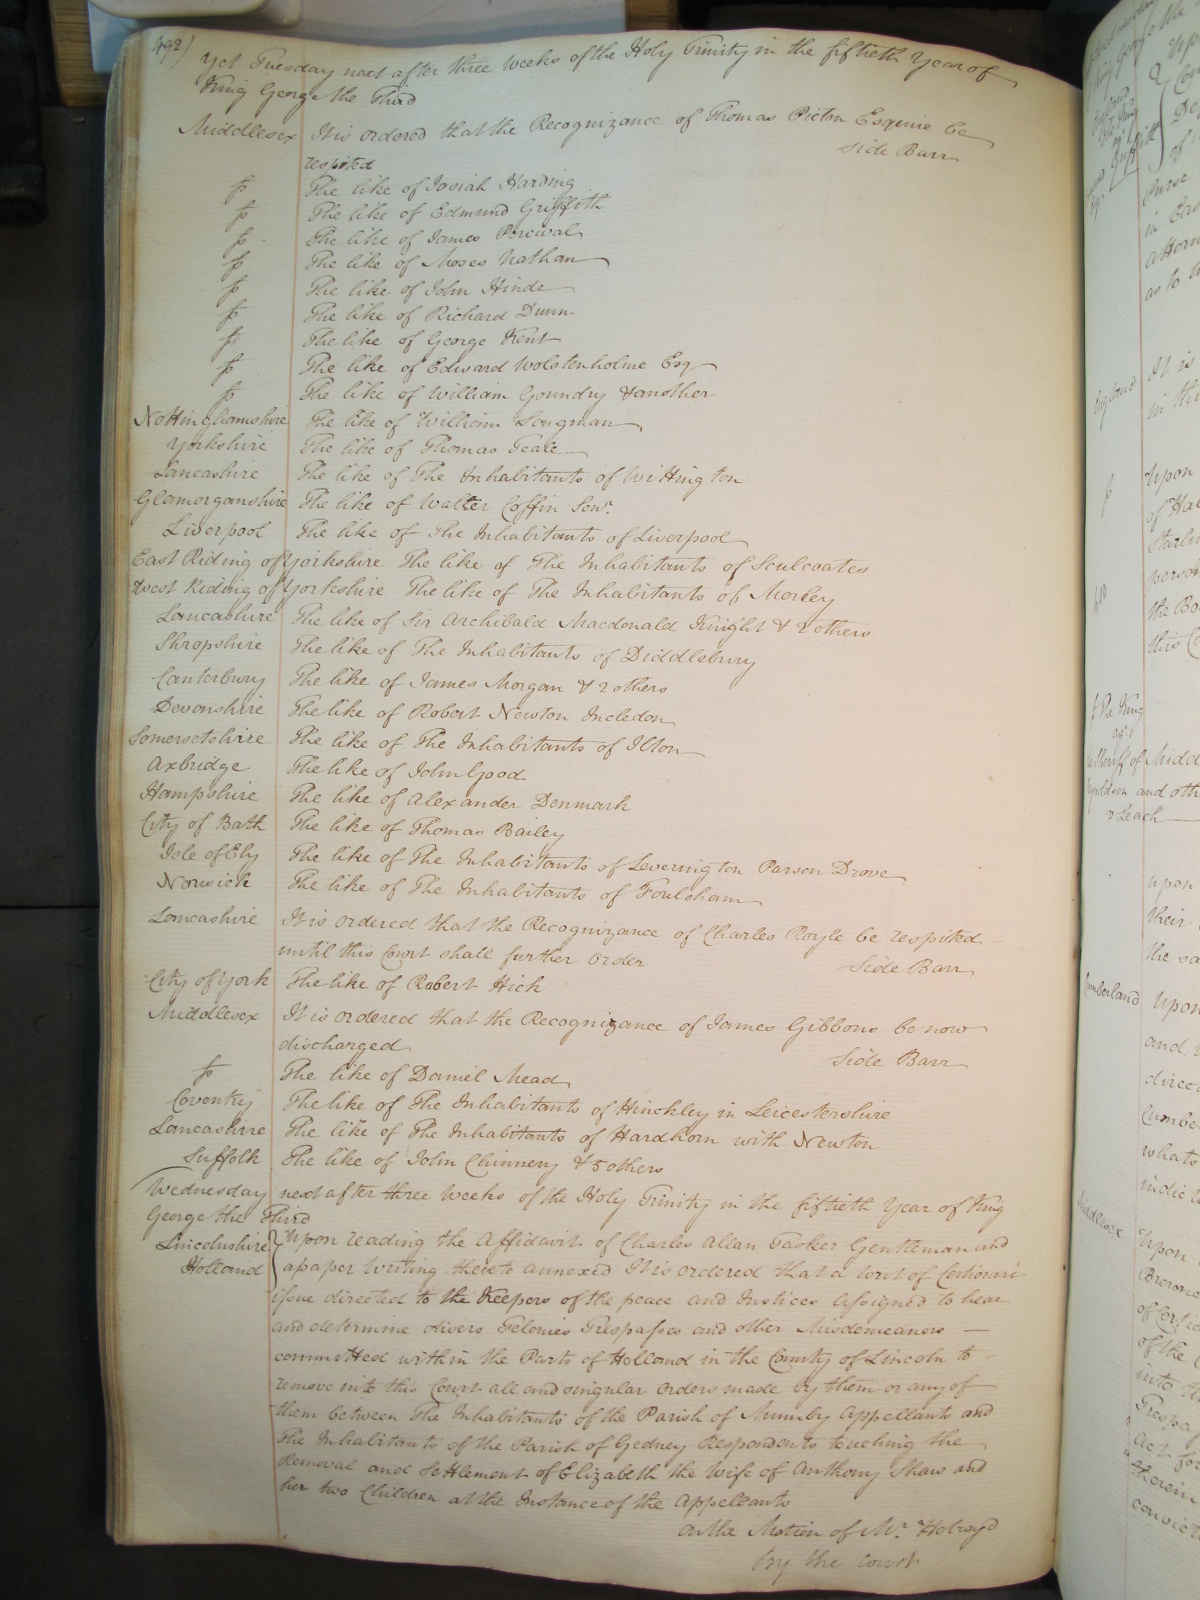 492)
Yet Tuesday next after three Weeks of the Holy Trinity in the fiftieth Year of
King George the Third
Middlesex It is ordered that the Recognizance of Thomas Picton Esquire be
respited Side Barr
The like of Josiah Harding
The like of Edmund Griffith
The like of James Percival
The like of Moses Nathan
The like of John Hinde
The like of Richard Dunn
The like of George Kent
The like of Edward Wolstenholme Esq
The like of William Goundry & another
Nottinghamshire The like of William Longman
Yorkshire The like of Thomas Teale
Lancashire The like of The Inhabitants of Wittington
Glamorganshire The like of Walter Coffin Senr.
Liverpool The like of The Inhabitants of Liverpool
East Riding of Yorkshire The like of The Inhabitants of Sculcoates
West Riding of Yorkshire The like of The Inhabitants of Morley
Lancashire The like of Sir Archibald Macdonald Knight & 2 others
Shropshire The like of The Inhabitants of Diddlebury
Canterbury The like of James Morgan & 2 others
Devonshire The like of Robert Newton Incledon
Somersetshire The like of The Inhabitants of Ilton
Axbridge The like of John Good
Hampshire The like of Alexander Denmark
City of Bath The like of Thomas Bailey
Isle of Ely The like of The Inhabitants of Leverington Parson Drove
Norwich The like of The Inhabitants of Foulsham
Lancashire It is ordered that the Recognizance of Charles Royle be respited
until this Court shall further order Side Barr
City of York The like of Robert Hick
Middlesex It is ordered that the Recognizance of James Gibbons be now
discharged Side Barr
The like of Daniel Mead
Coventry The like of The Inhabitants of Hinckley in Leicestershire
Lancashire The like of The Inhabitants of Hardhorn with Newton
Suffolk The like of John Chinnery & 5 others
Wednesday next after three Weeks of the Holy Trinity in the fiftieth Year of King
George the Third
Lincolnshire Upon reading the Affidavit of Charles Allan Tasker Gentleman and
Holland a paper Writing thereto annexed It is ordered that a writ of Certiorari
issue directed to the Keepers of the peace and Justices assigned to hear
and determine divers Felonies Trespasses and other Misdemeanors —
committed within the Parts of Holland in the County of Lincoln to
remove into this Court all and singular Orders made by them or any of
them between The Inhabitants of the Parish of Mumby Appellants and
The Inhabitants of the Parish of Gedney Respondents touching the
Removal and Settlement of Elizabeth the Wife of Anthony Shaw and
her two Children at the Instance of the Appellants
On the Motion of Mr. Holroyd
By the Court
It is
in this
Upon
of Ha
person
the Bo
this C
The King
agt
Sheriff of Midd
and oth
v Leach
upon
their
the sa
Cumberland Upon
and
direc
Cumbe
whats
indic
Middlesex Upon
of the
into th
Trespa
Act for
therein
convict